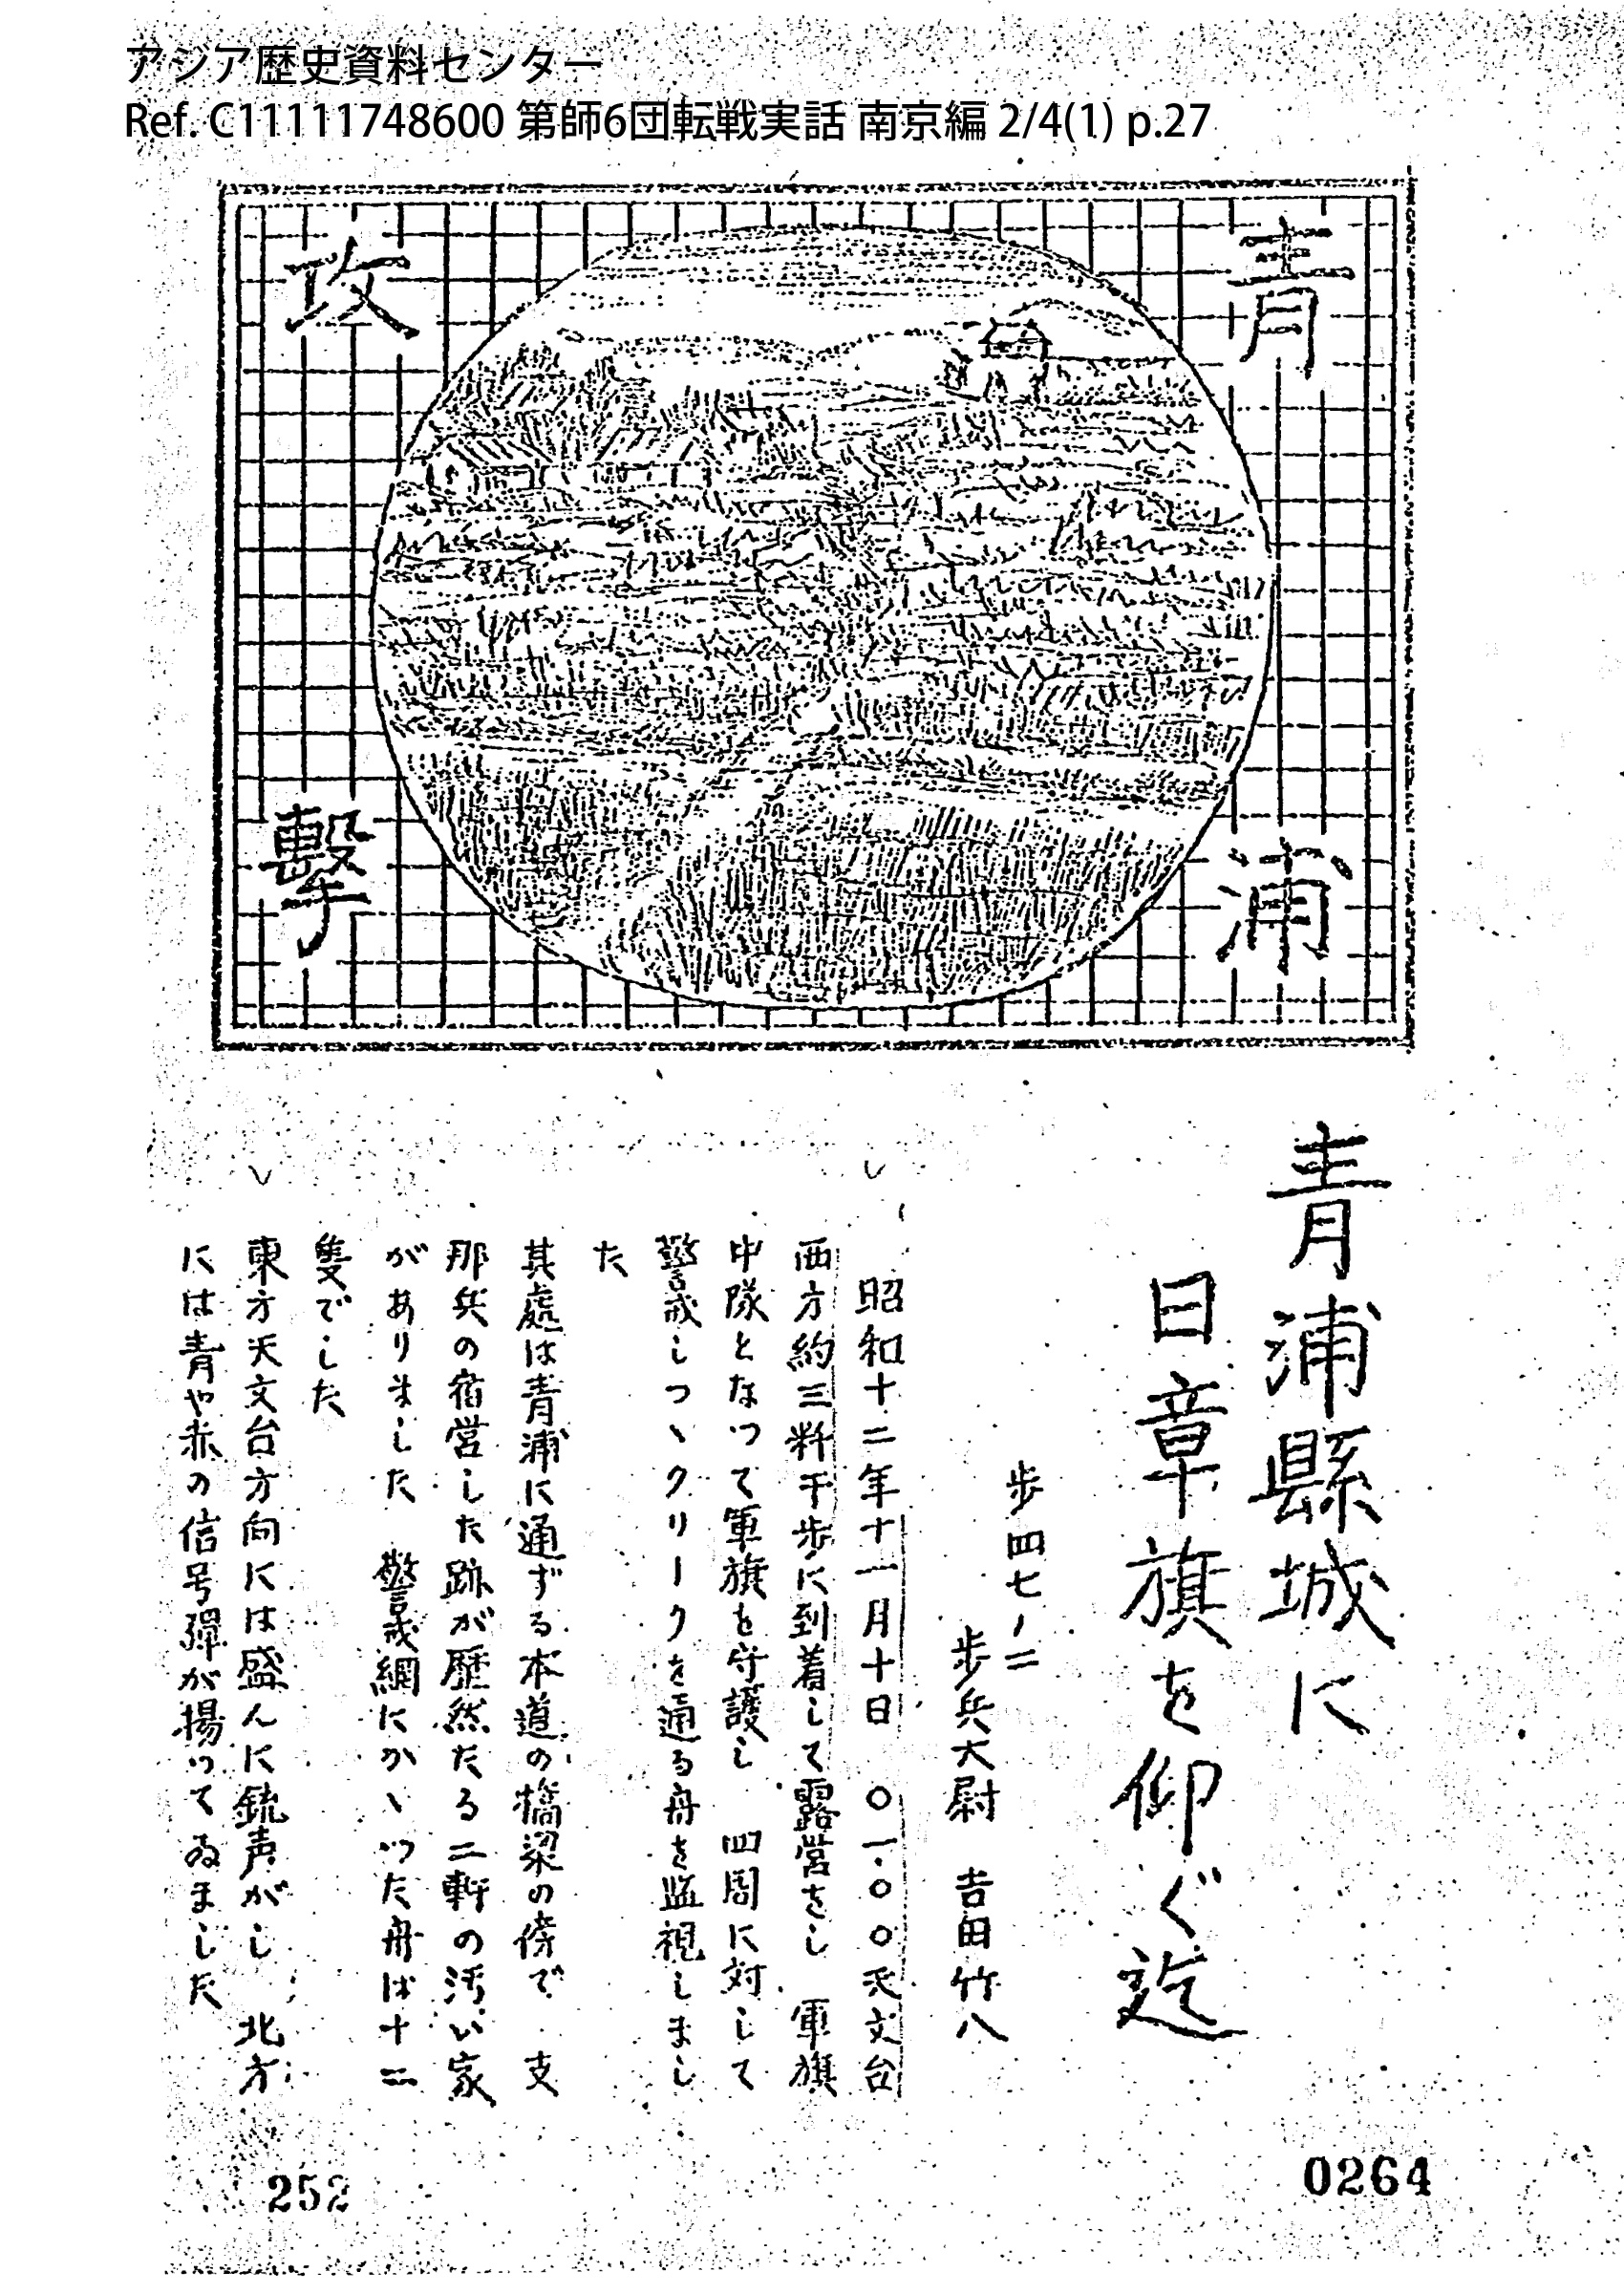 アジア歴史資料センター
Ref. C11111748600 第師6団転戦実話 南京編 2/4(1) p.27
青浦
攻撃
青浦縣城に
日章旗を仰ぐ迄
歩四七ノ二
歩兵大尉 吉田竹八
昭和十二年十一月十日 〇一.〇〇天文台
西方約三粁千歩に到着して露営をし 軍旗
中隊となつて軍旗を守護し 四周に対して
警戒しつヽクリークを通る舟を監視しまし
た
其處は青浦に通ずる本道の橋梁の傍で 支
那兵の宿営した跡が歴然たる二軒の汚い家
がありました 警戒網にかヽつた舟は十二
隻でした
東方天文台方向には盛んに銃声がし 北方
には青や赤の信号弾が揚つてゐました
252
0264